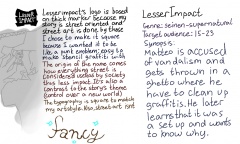 LESSER IMPACT
Lesserimpact's logo is based
on thick marker because my
story is street oriented and
street art is done by those
I chose to make it square
because I wanted it to be
like a punk emblem, easy to
make stencil graffiti with
The origin of the name comes
how everything street is
considered useless by society
thus less impact. It's also a
contrast to the story's theme
(control over a new world)
The typography is square to match
my artstyle. Also, street art isnt
fancy
LesserImpact
Genre: seinen-supernatural
Target audience: 15-23
Synopsis:
Matteo is accused
of vandalism and
gets thrown in a
ghetto where he
have to clean up
graffitis. He later
learns that it was
a set up and wants
to know why.